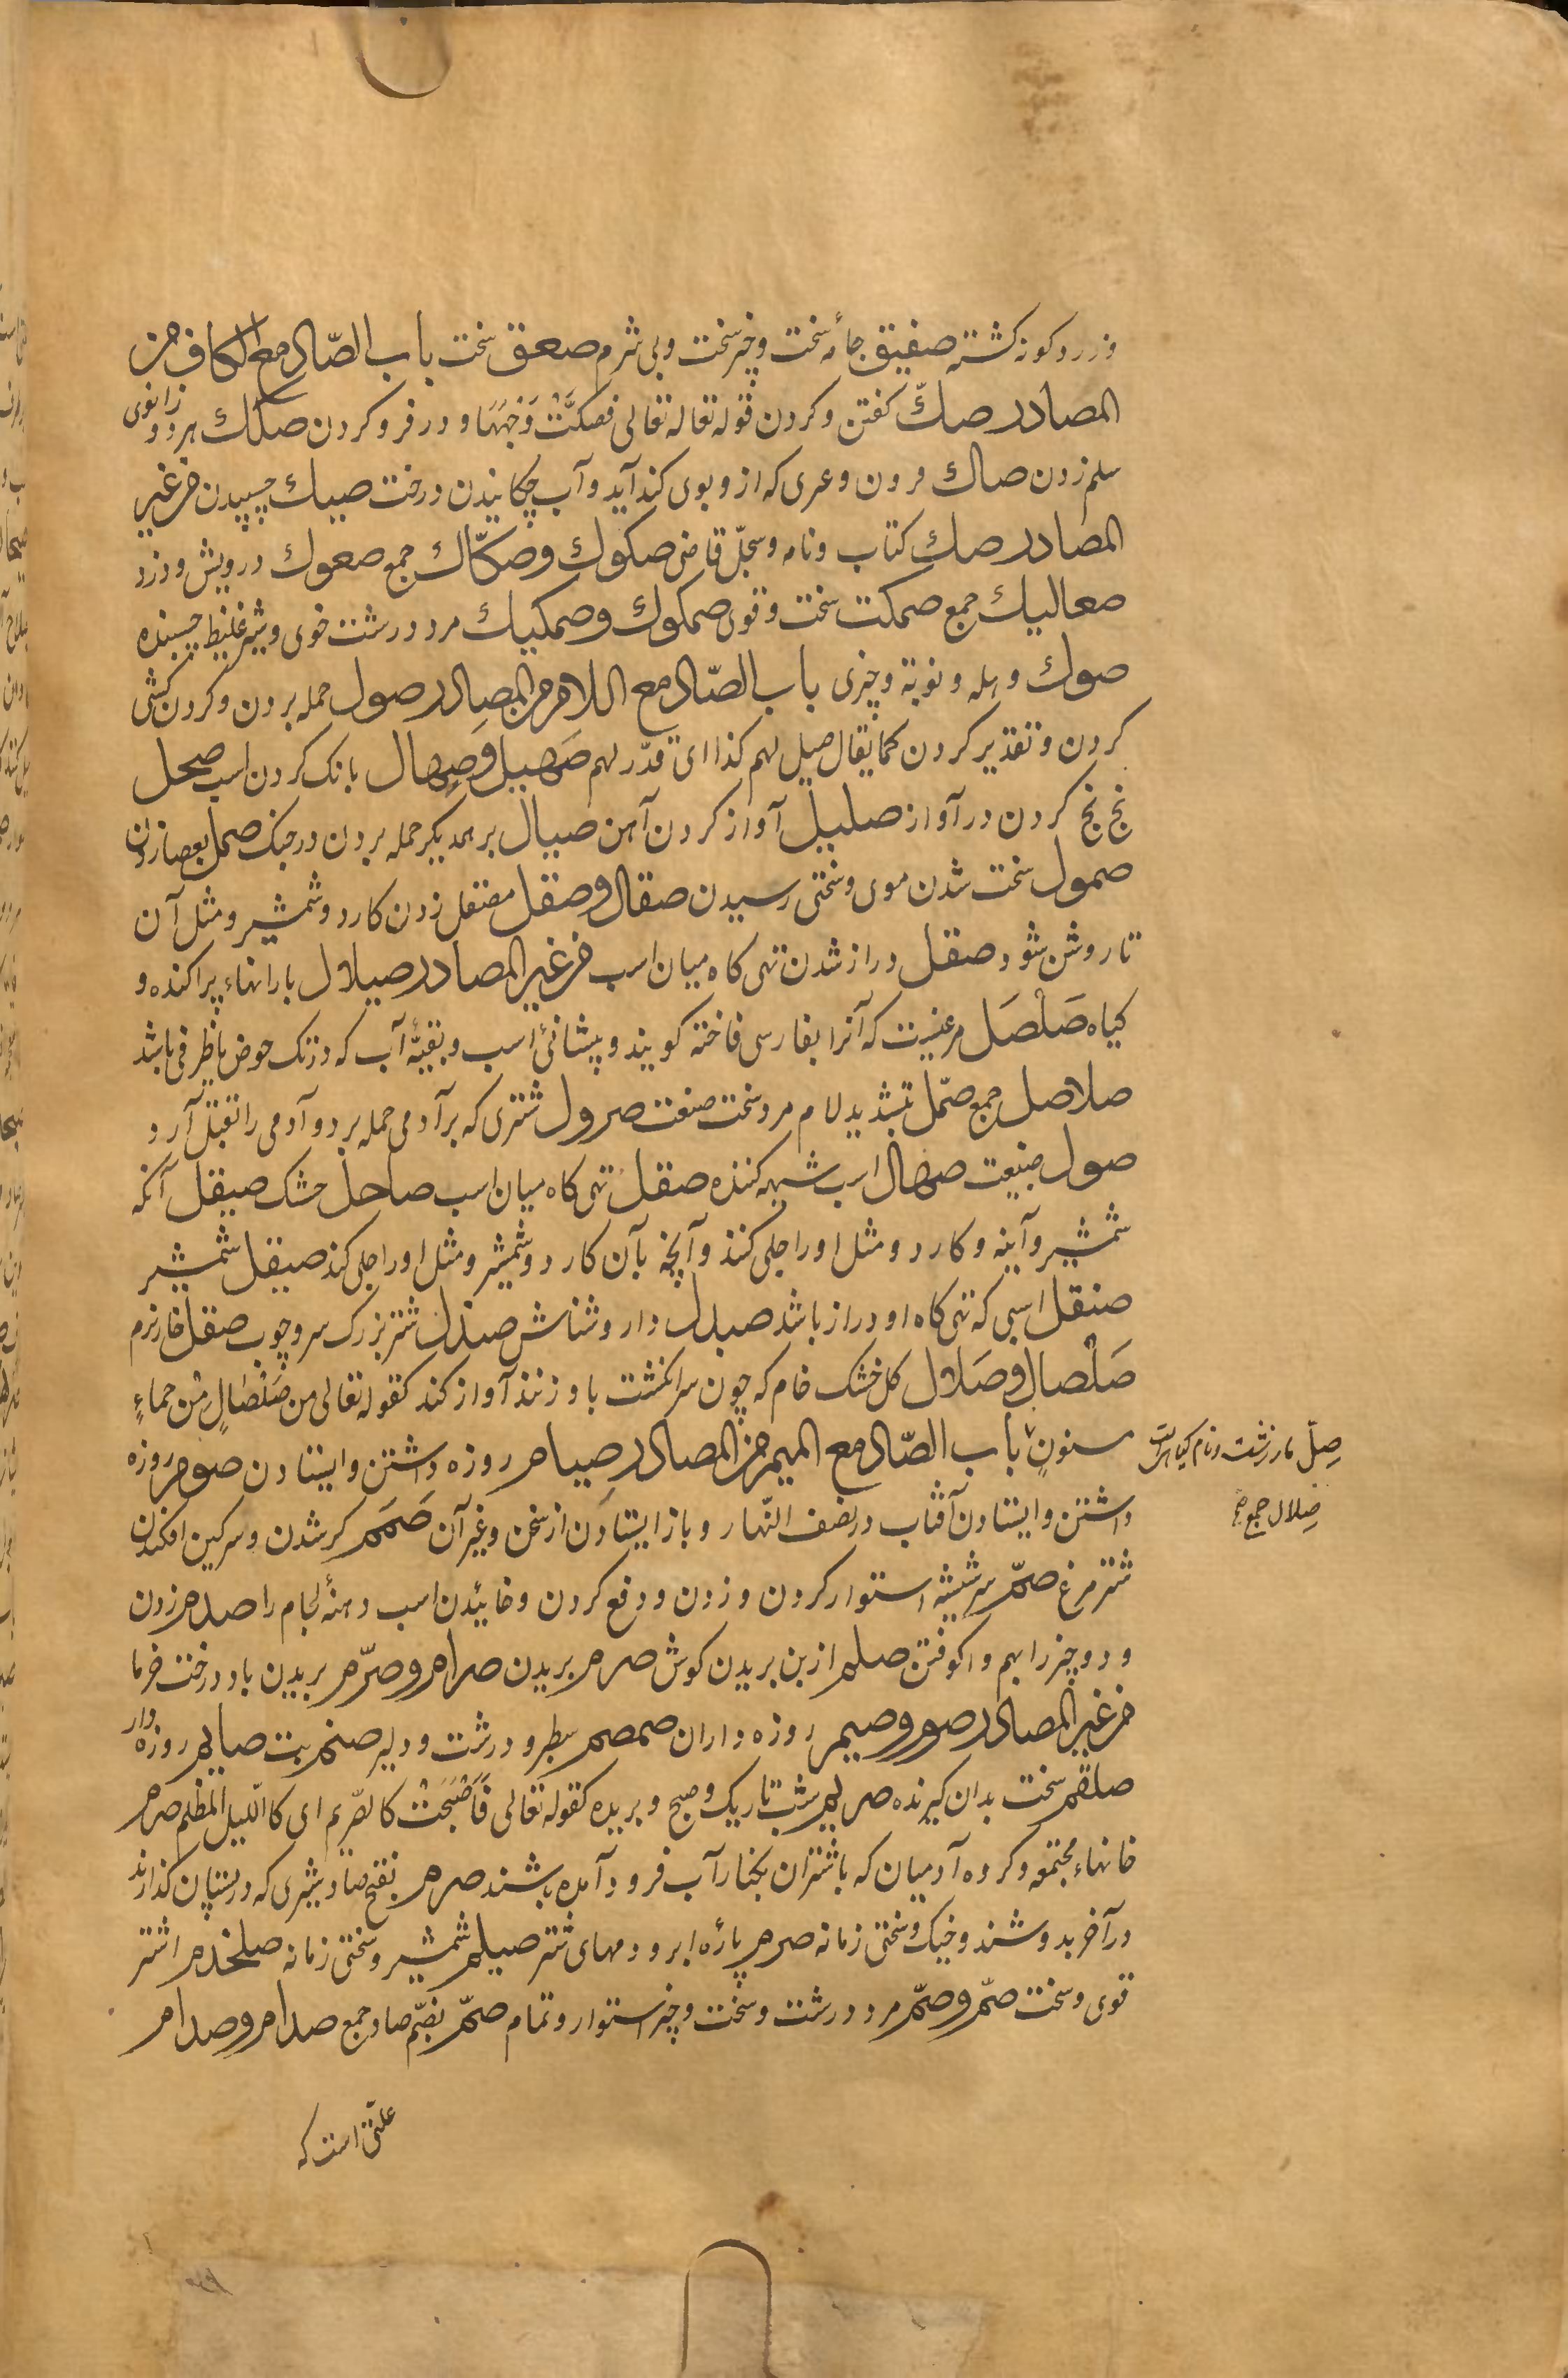 وزرد کونه کشته صفیق جامهٔ سخت و چیز سخت و بی شرم صعق سخت باب الصّاد مع الکاف من
المصادر صكّ کفتن و کردن قوله تعاله تعالی فصکّتْ وَجْهَهَا و در فرو کردن صكك هر دو زانوی
زدن صاك و عرق که ازو بوی کند آید و آب چکانیدن درخت صیك چسپیدن من غیر
المصادر صك کتاب و نامه و سجلّ قاضی صکوك و صکّاك جمع صعوك درویش و دزد
صعالیك جمع صمکت سخت و قوی صمکوك و صمکیك مرد درشت خوی و شیر غلیظ چسبنده
صوك وهله و نوبة و چیزی باب الصّاد مع اللام من المصادر صول حمله بردن و کردن کشی
کردن و تقدیر کردن کما یقال صیل لهم کذا ای قدّر لهم صَهیل و صِهال بانک کردن اسب صحل
نخ نخ کردن در آواز صلیل آواز کردن آهن صیال بر همدیکر حمله بردن در جنک صمل بعصا زدن
صمول سخت شدن موی و سختی رسیدن صقال و صقل مصقل زدن کارد و شمشیر و مثل آن
تا روشن شود صقل دراز شدن تهی کاه میان اسب من غیر المصادر صیلال بارانهاء پراکنده و
کیاه صَلْصَل مرغیست که آنرا بفارسی فاخته کویند و پیشانئ اسب و بقیّهٔ آب که در تک حوض یا ظرفی باشد
صلاصل جمع صمّل بتشدید لام مرد سخت صنعت صرول شتری که بر آدمی حمله برد و آدمی را بقتل آرد
صول صنیعت صهال اسب شیهه کننده صقل تهی کاه میان اسب صاحل خشک صیقل آنکه
شمشیر و آینه و کارد و مثل او را جلی کند و آنچه بآن کارد و شمشیر و مثل او را جلی کند صیقل شمشیر
صنقل اسبی که تهی کاه او دراز باشد صیدل دارو شناس صندل شتر بزرک سر و چوب صقل خار نرم
صَلْصال و صَلال کل خشک خام که چون سر انکشت باو زنند آواز کند کقوله تعالی من صَلْصَالٍ مِنْ حماءٍ
مسنونٍ باب الصّاد مع المیم من المصادر صیام روزه داشتن و ایستادن صوم روزه
داشتن و ایستادن آفتاب در نصف النّهار و باز ایستادن از سخن و غیر آن صَمَم کر شدن و سرکین افکندن
شتر مرغ صمّ سر شیشه استوار کردن و زدن و دفع کردن و خائیدن اسب دهنهٔ لجام را صدم زدن
و دو چیز را بهم واکوفتن صلم از بن بریدن کوش صرم بریدن صرام و صرّم بریدن باد درخت خرما
من غیر المصادر صوم و صیم روزه داران صمصم سطبر و درشت و دلیر صنم بت صایم روزه دار
صلقم سخت بدان کیرنده صریم شب تاریک و صبح و بریده کقوله تعالی فَأَصْبَحَتْ کالصّریم ای کاللّیل المظلم صرم
خانهاء مجتمعه و کروه آدمیان که با شتران بکنار آب فرود آمده باشند صرم بفتح صاد شیری که در پستان کذارند
در آخر بدوشند و خیک و سختی زمانه صرم پارهٔ ابر و رمهای شتر صیلم شمشیر و سختی زمانه صلخدم اشتر
قوی و سخت صمّ و صمّ مرد درشت و سخت و چیز استوار و تمام صمّ بضمّ صاد جمع صدام و صدام
صِلّ مار زشت و نام کیاهیست
صِلال جمع
علّتی است که